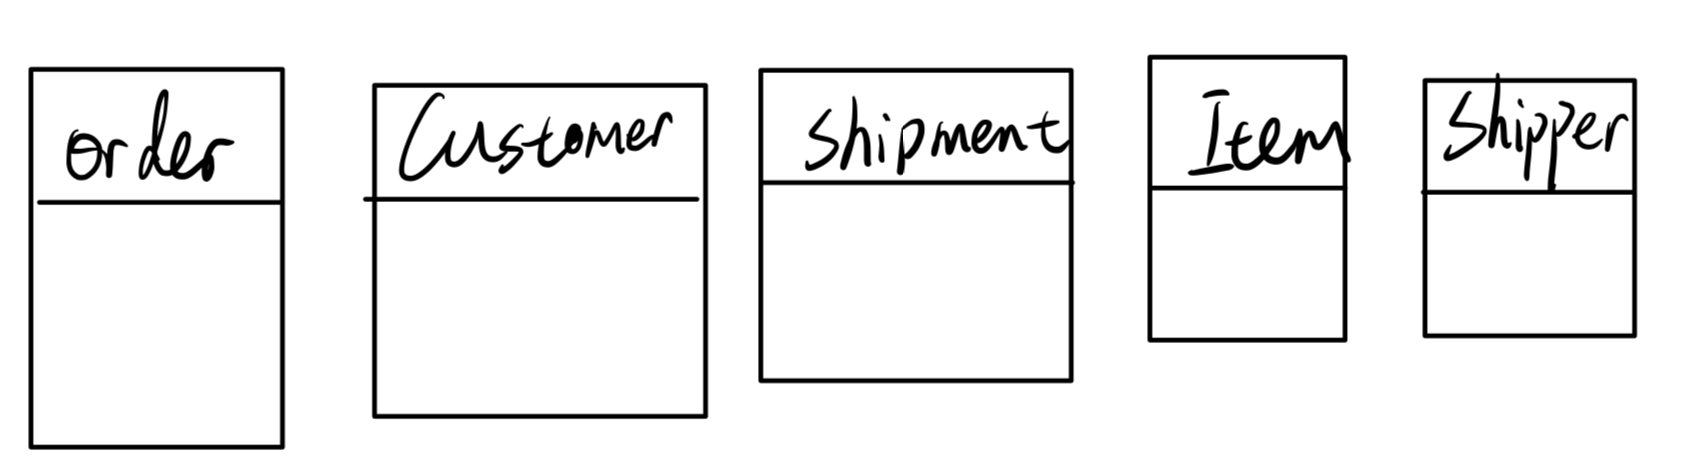 order
Customer
Shipment
Item
Shipper